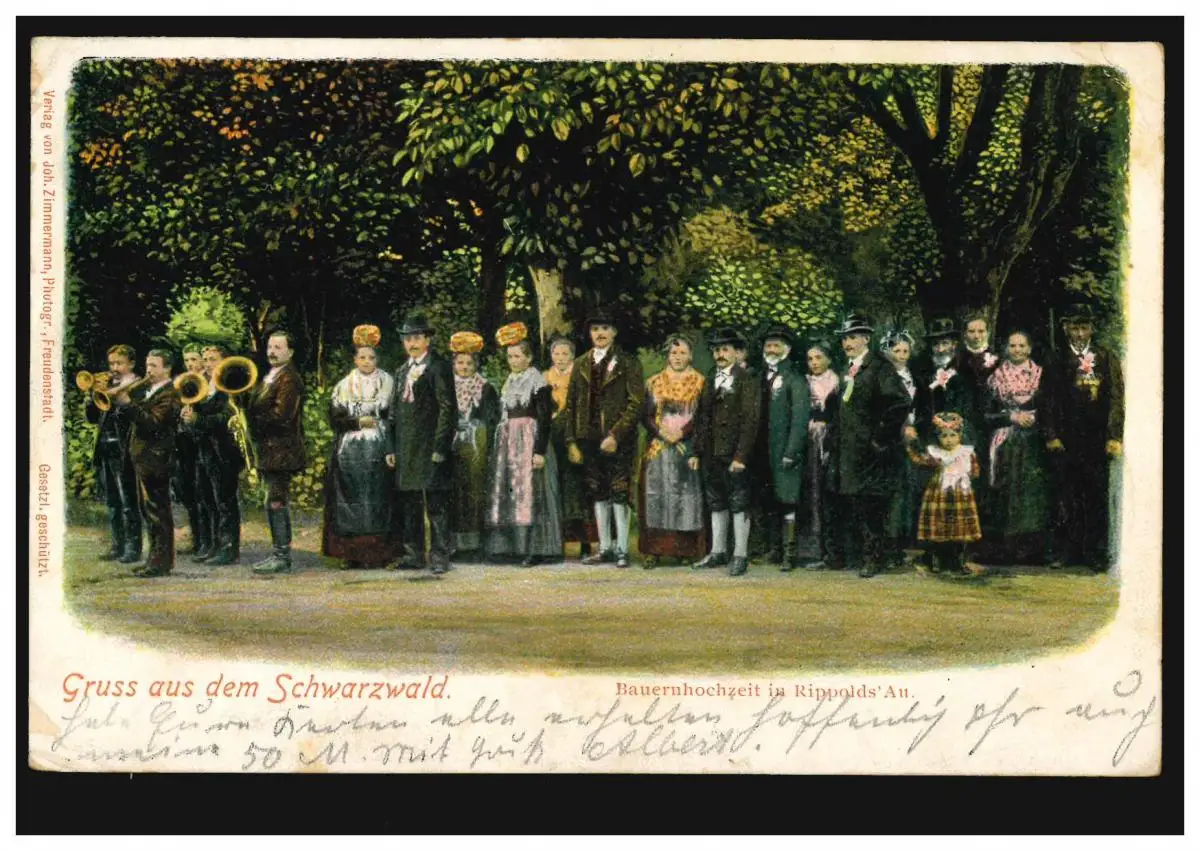 Verlag von Joh. Zimmermann, Photogr., Freudenstadt. Gesetzl. geschützt.
Gruss aus dem Schwarzwald.
Bauernhochzeit in Rippolds'Au.
Habe Eure Karten alle erhalten hoffentlich Ihr auch
meine 50 M. Mit Gruß Albert.